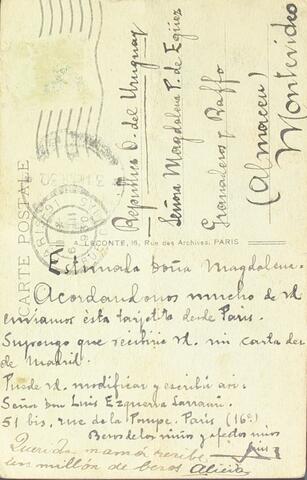 CARTE POSTALE
LECONTE, 16, Rue des Archives, PARIS
República O. del Uruguay
Señora Magdalena P. de Egüez
Granaderos y Raffo
(Almacen)
Montevideo
Estimada Doña Magdalena.
Acordandonos mucho de Vd
enviamos ésta tarjetta desde Paris.
Supongo que recibió Vd. mi carta de
de Madrid.
Puede Vd. modificar y escribir asi:
Señor Don Luis Ezquerra Larrañ
51 bis, rue de la Pompe. Paris (16e)
Besos de los niños y afectos mios
Luis
Querida mamá recibe
un millón de besos Alicia